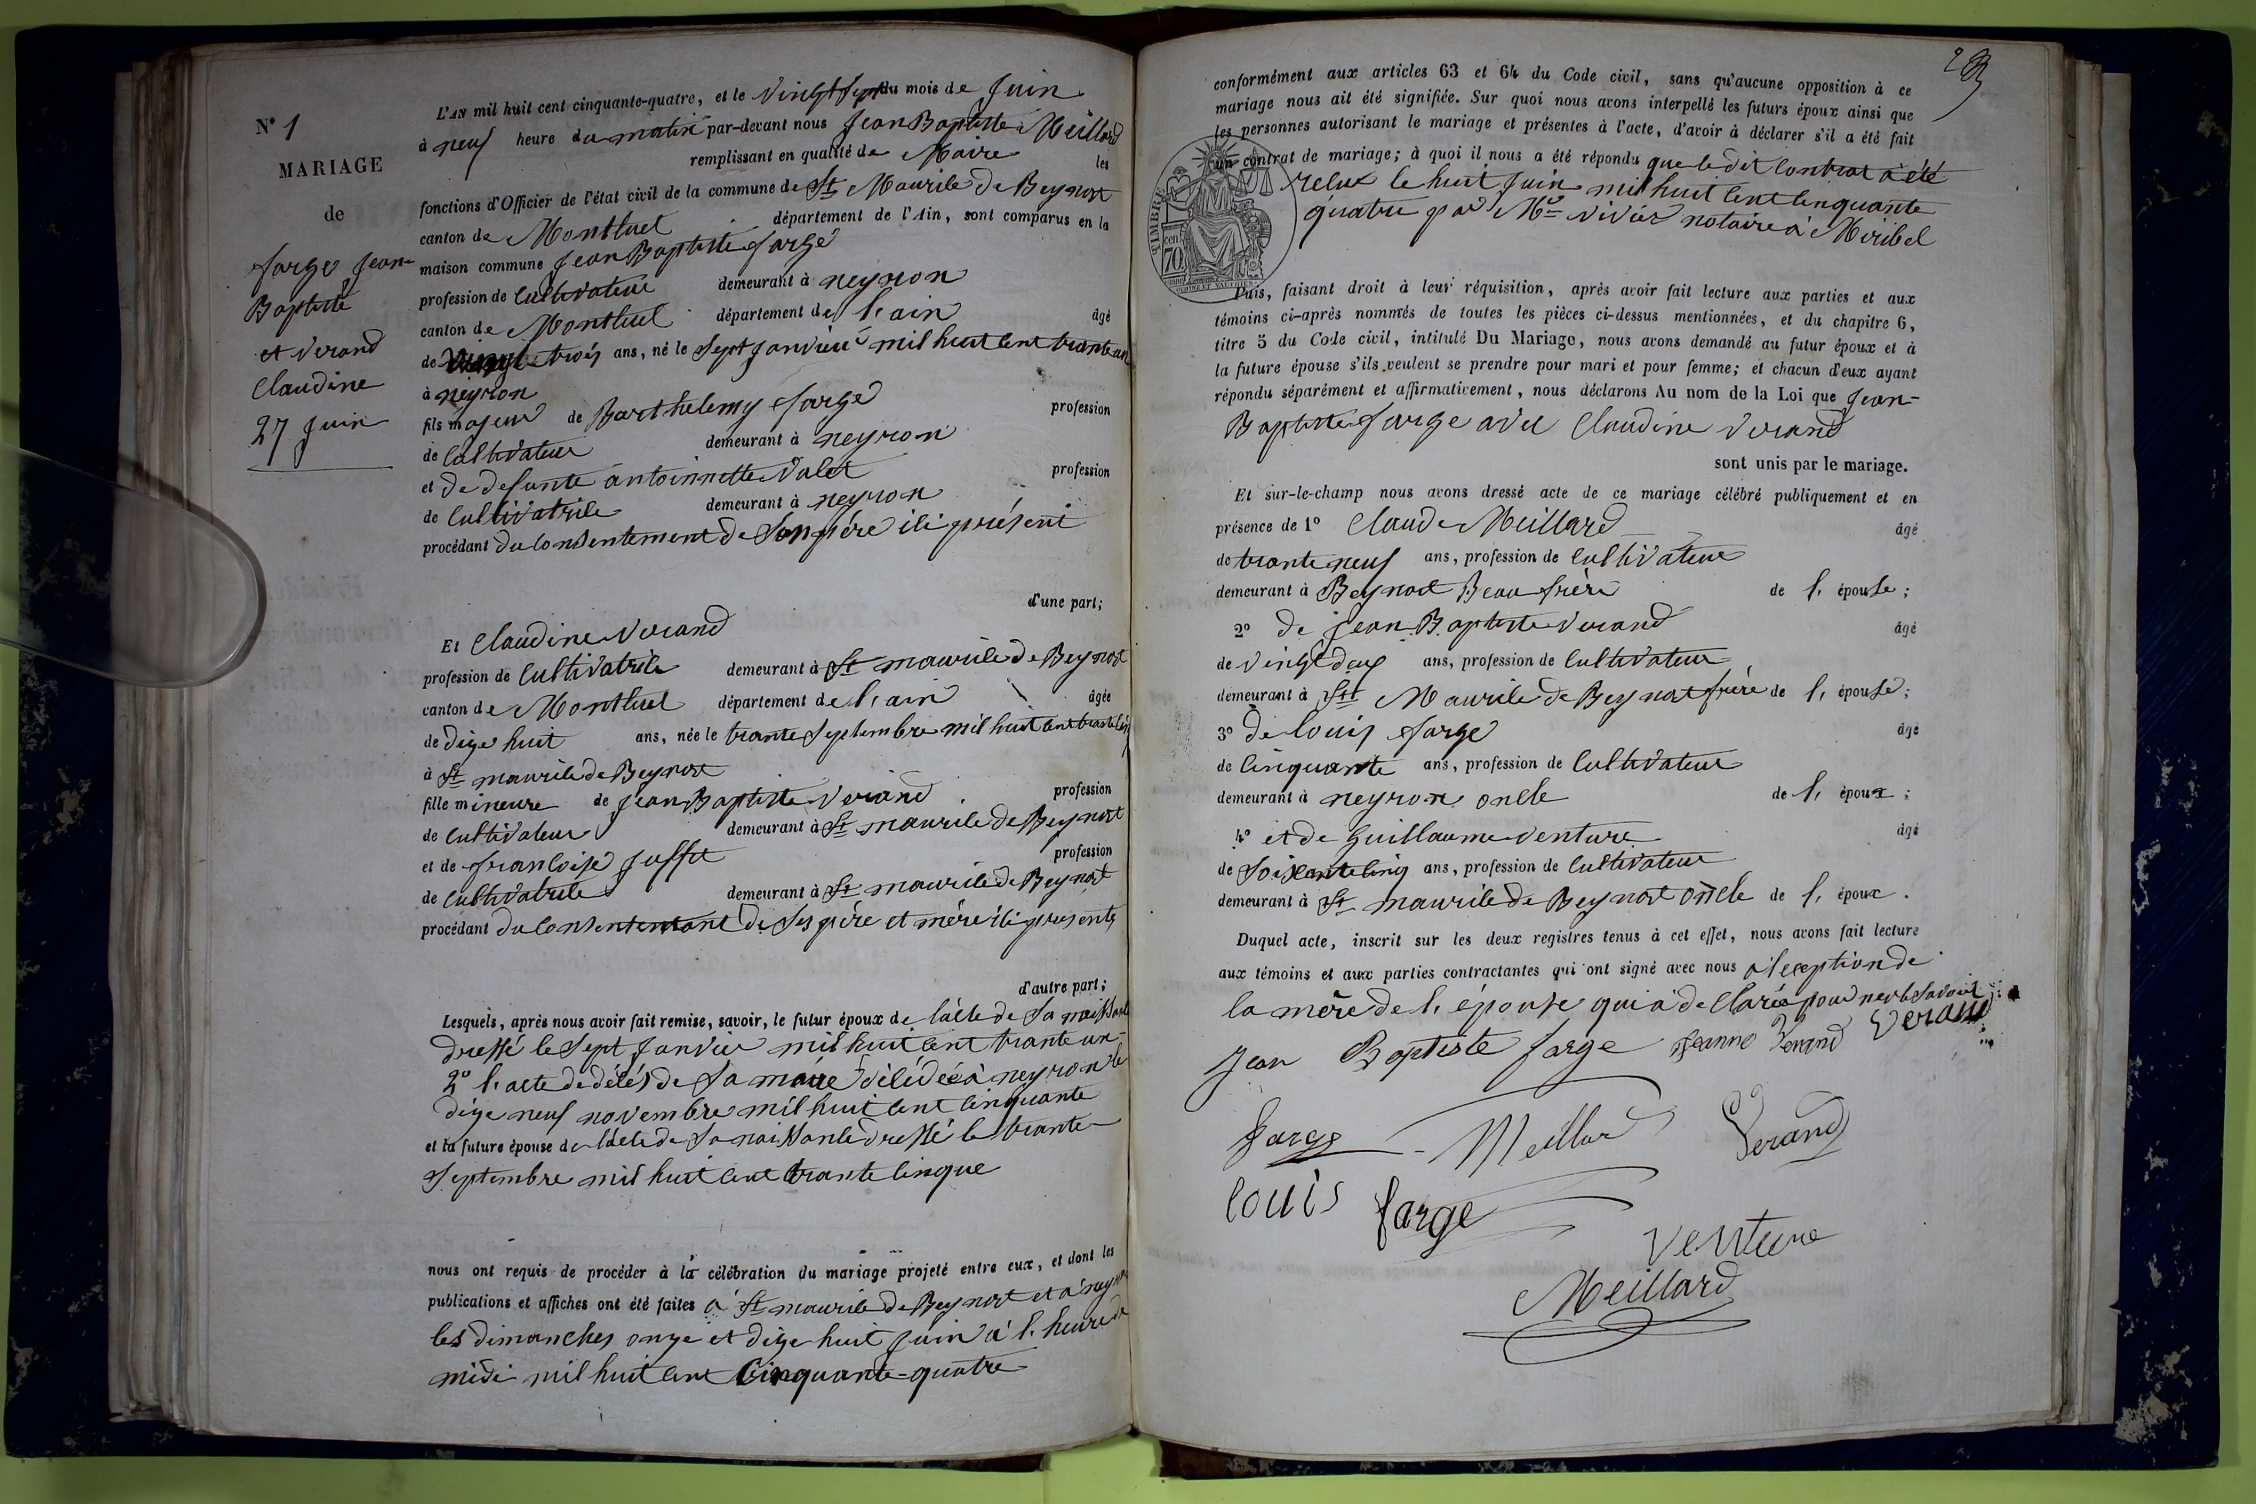 N° 1
MARIAGE
de
farge Jean
Baptiste
et Verand
Claudine
27 Juin
L'AN mil huit cent cinquante-quatre, et le Vingt sept du mois de Juin
à neuf heure du matin par-devant nous Jean Baptiste Meillard
remplissant en qualité de Maire les
fonctions d'Officier de l'état civil de la commune de St Maurice de Beynost
canton de Montluel département de l'Ain, sont comparus en la
maison commune Jean Baptiste farge
profession de Cultivateur demeurant à neyron
canton de Montluel département de l'ain âgé
de Vingt trois ans, né le Sept Janvier mil huit cent trante un
à neyron
fils majeur de Barthelemy farge profession
de Cultivateur demeurant à neyron
et de defunte antoinnette Valet profession
de Cultivatrice demeurant à neyron
procédant du consentement de Son père ici présent
d'une part;
Et Claudine Verand
profession de Cultivatrice demeurant à St maurice de Beynost
canton de Montluel département de l'ain âgée
de dize huit ans, née le trante Septembre mil huit cent trante cinq
à St maurice de Beynost
fille mineure de Jean Baptiste Verand profession
de Cultivateur demeurant à St maurice de Beynost
et de francoise Juffet profession
de Cultivatrice demeurant à St maurice de Beynost
procédant du consentement de Ses père et mère ici presents
d'autre part;
Lesquels, après nous avoir fait remise, savoir, le futur époux de l'acte de Sa naissance
dressé le Sept Janvier mil huit cent trante un
2° l'acte de décés de Sa mère décédée à neyron le
dize neuf novembre mil huit cent cinquante
et la future épouse de l'acte de Sa naissance dressé le trante
Septembre mil huit cent trante cinque
nous ont requis de procéder à la célébration du mariage projeté entre eux, et dont les
publications et affiches ont été faites à St maurice de Beynost et à neyron
les dimanches onze et dize huit Juin à l'heure de
midi mil huit cent Cinquante-quatre
conformément aux articles 63 et 64 du Code civil, sans qu'aucune opposition à ce
mariage nous ait été signifiée. Sur quoi nous avons interpellé les futurs époux ainsi que
les personnes autorisant le mariage et présentes à l'acte, d'avoir à déclarer s'il a été fait
un contrat de mariage; à quoi il nous a été répondu que le dit Contrat à été
relux le huit Juin mil huit cent cinquante
quatre par Me Vivier notaire à Miribel
TIMBRE
cent
70
Puis, faisant droit à leur réquisition, après avoir fait lecture aux parties et aux
témoins ci-après nommés de toutes les pièces ci-dessus mentionnées, et du chapitre 6,
titre 5 du Code civil, intitulé Du Mariage, nous avons demandé au futur époux et à
la future épouse s'ils veulent se prendre pour mari et pour femme; et chacun d'eux ayant
répondu séparément et affirmativement, nous déclarons Au nom de la Loi que Jean-
Baptiste farge avec Claudine Verand
sont unis par le mariage.
Et sur-le-champ nous avons dressé acte de ce mariage célébré publiquement et en
présence de 1° Claude Meillard âgé
de trante neuf ans, profession de Cultivateur
demeurant à Beynost Beau frère de l'épouse;
2° de Jean Baptiste Verand âgé
de Vingt deux ans, profession de Cultivateur
demeurant à St Maurice de Beynost frère de l'épouse;
3° de louis farge âgé
de Cinquante ans, profession de Cultivateur
demeurant à neyron oncle de l'époux;
4° et de Guillaume Venture âgé
de Soixante cinq ans, profession de Cultivateur
demeurant à St maurice de Beynost oncle de l'époux.
Duquel acte, inscrit sur les deux registres tenus à cet effet, nous avons fait lecture
aux témoins et aux parties contractantes qui ont signé avec nous à l'exeption de
la mère de l'épouse qui à déclaré pour ne le Savoir
Jean Baptiste farge Jeanne Verand Verand
farge Meillard Verand
louis farge
venture
Meillard